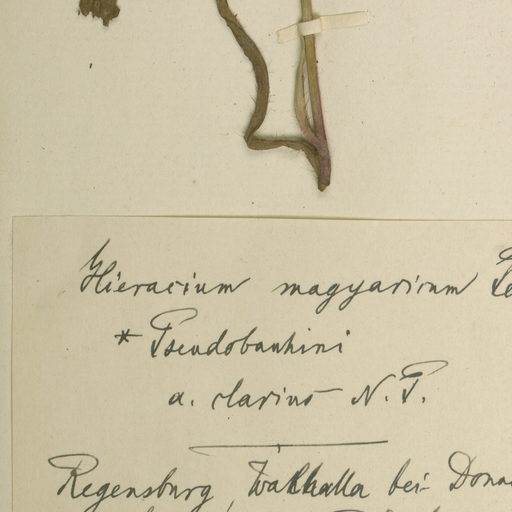 Hieracium magyaricum
* Pseudobauhini
a. clarius N. P.
Regensburg, Walhalla bei